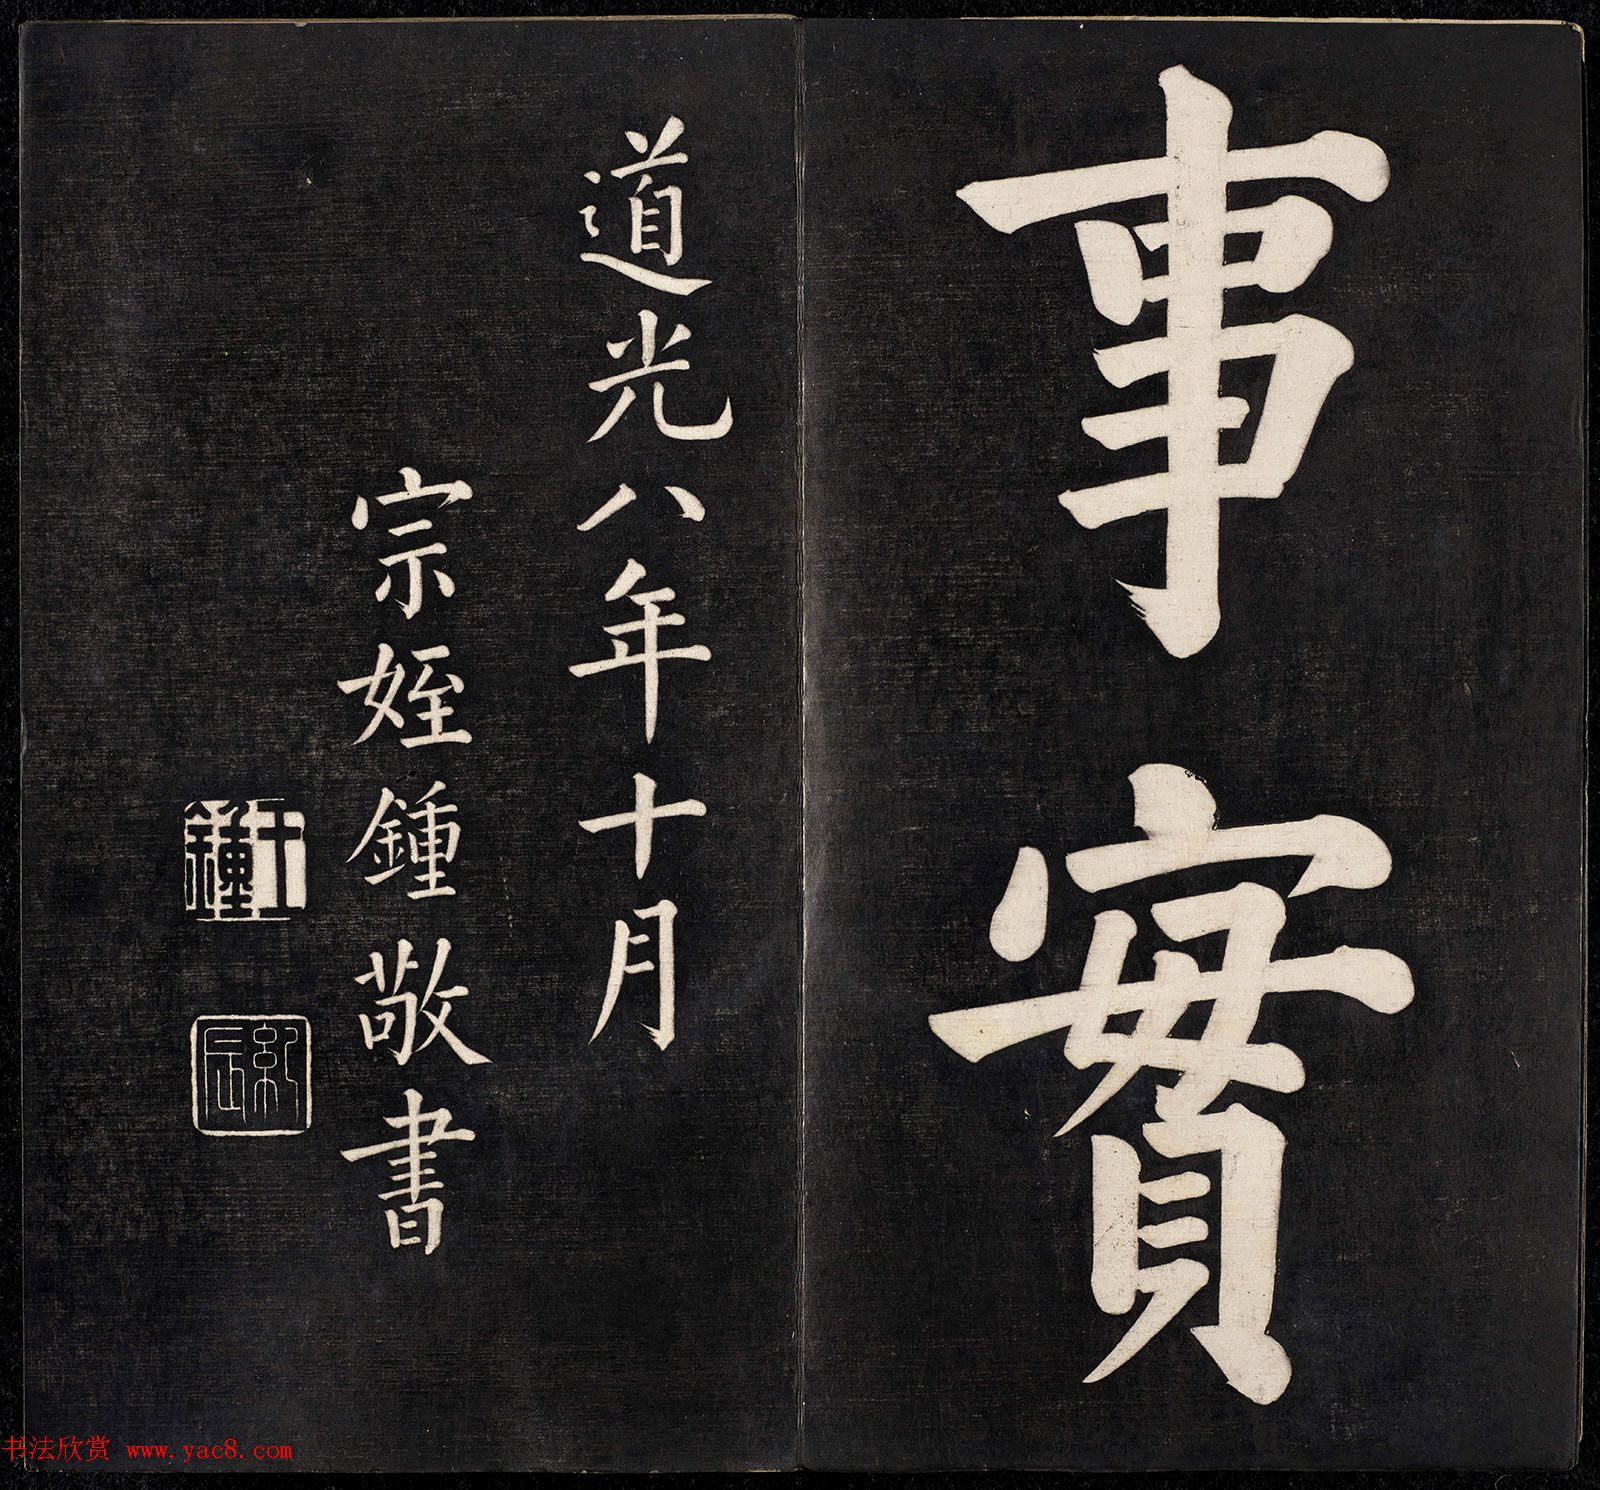 事實
道光八年十月
宗姪鍾敬書
王鍾
書法欣赏 www.yac8.com